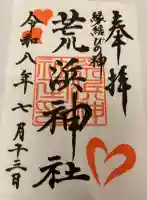 奉拝
縁結びの神
荒浜神社
令和八年七月十三日